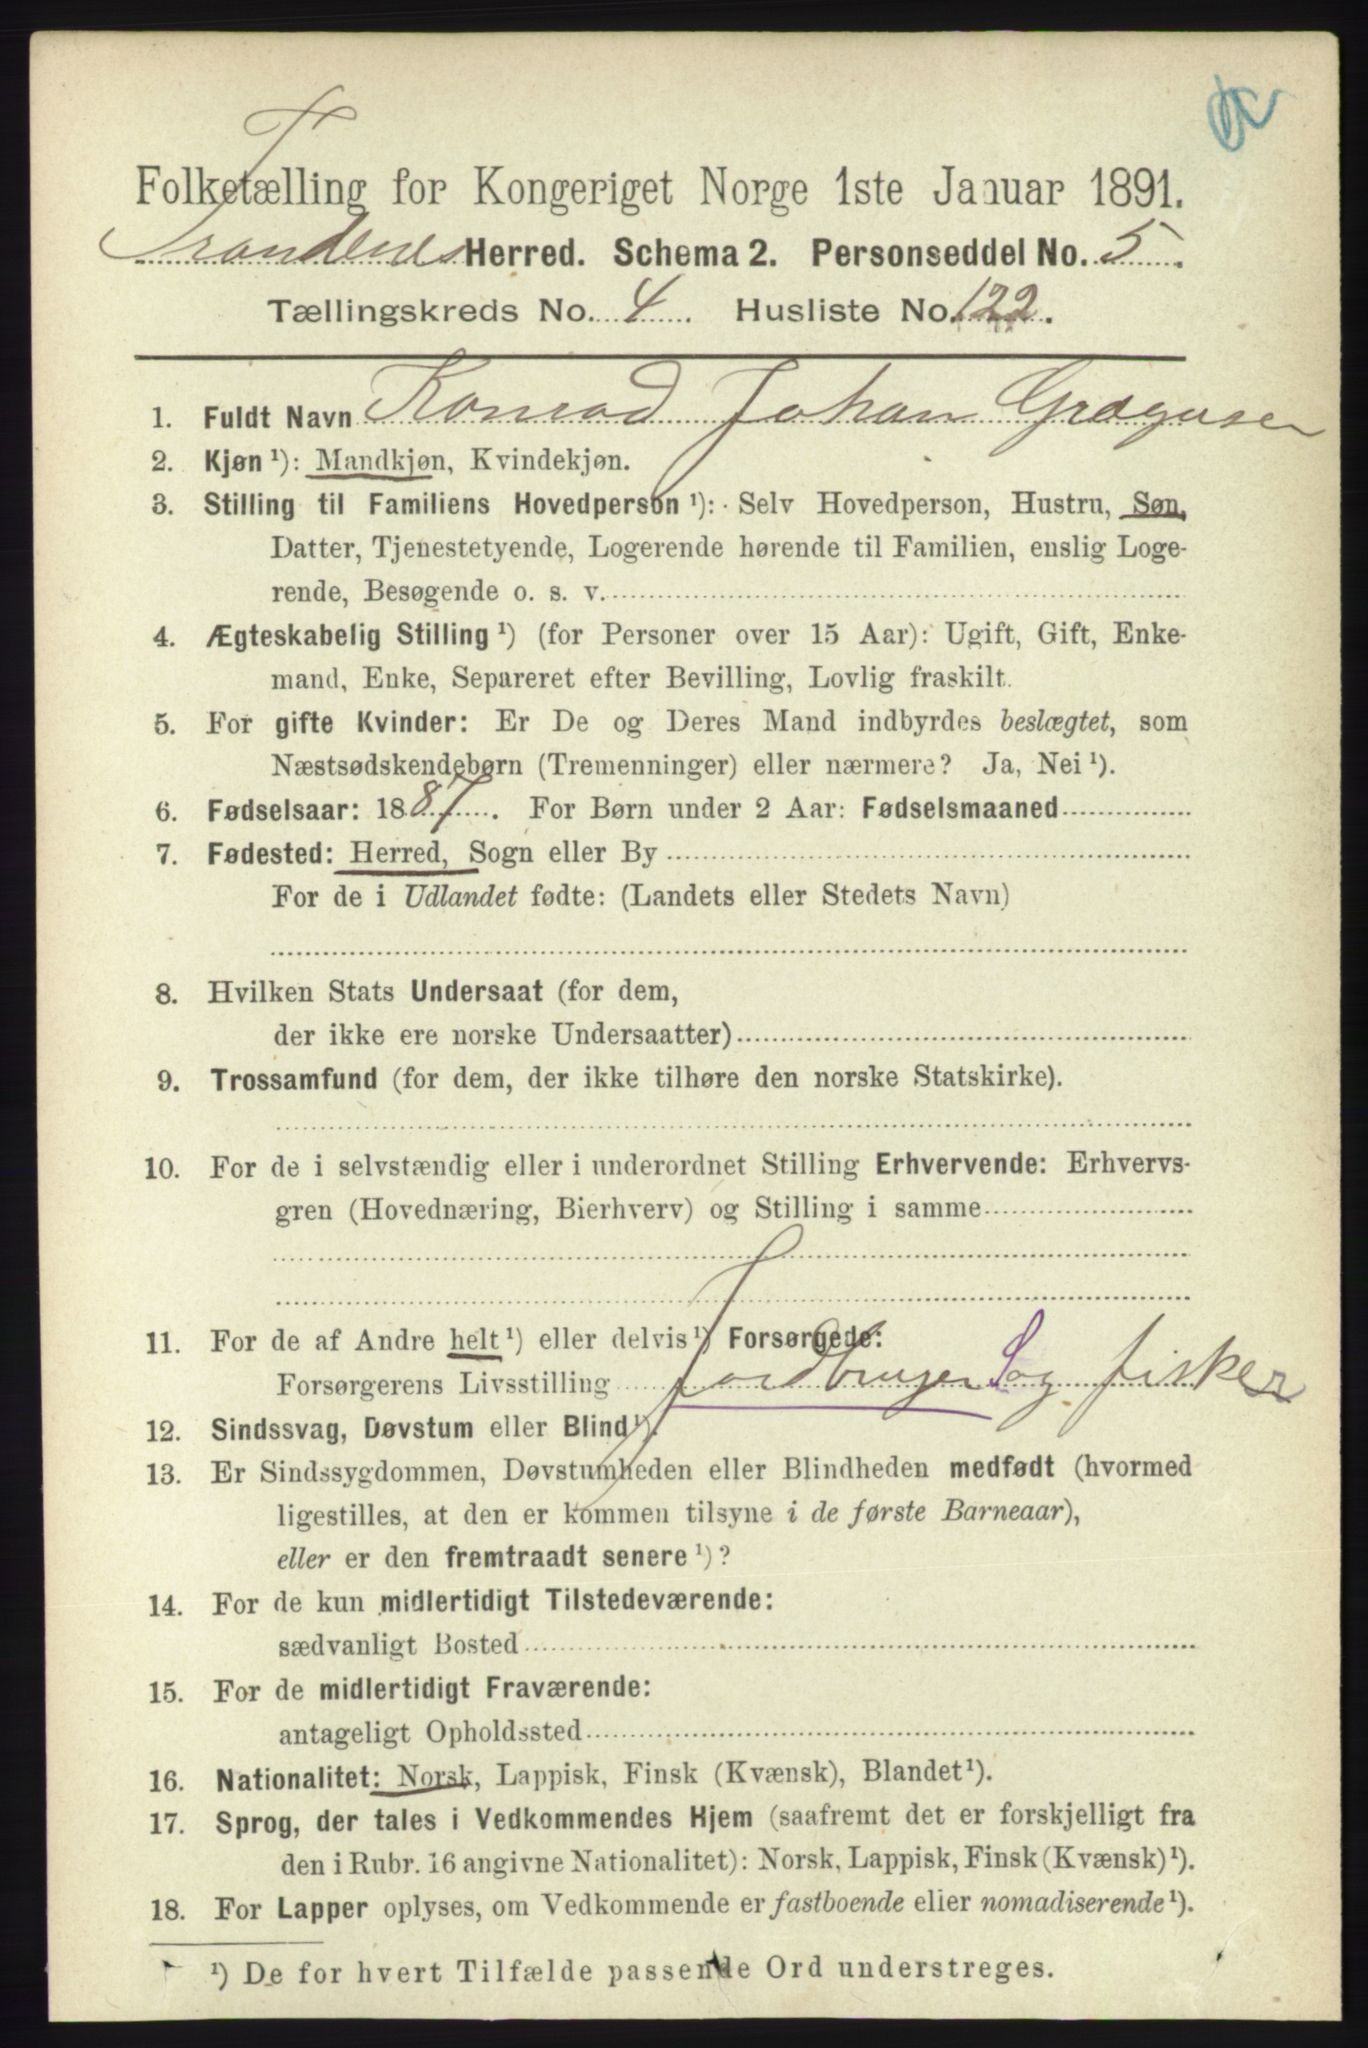 Folketælling for Kongeriget Norge 1ste Januar 1891.
Trondenes Herred. Schema 2. Personseddel No. 5.
Tællingskreds No. 4. Husliste No. 122.
1. Fuldt Navn Konrad Johan Grægusen
2. Kjøn ¹): Mandkjøn, Kvindekjøn.
3. Stilling til Familiens Hovedperson ¹): Selv Hovedperson, Hustru, Søn,
Datter, Tjenestetyende, Logerende hørende til Familien, enslig Loge-
rende, Besøgende o. s. v.
4. Ægteskabelig Stilling ¹) (for Personer over 15 Aar): Ugift, Gift, Enke-
mand, Enke, Separeret efter Bevilling, Lovlig fraskilt.
5. For gifte Kvinder: Er De og Deres Mand indbyrdes beslægtet, som
Næstsødskendebørn (Tremenninger) eller nærmere? Ja, Nei ¹).
6. Fødselsaar: 1887. For Børn under 2 Aar: Fødselsmaaned
7. Fødested: Herred, Sogn eller By
For de i Udlandet fødte: (Landets eller Stedets Navn)
8. Hvilken Stats Undersaat (for dem,
der ikke ere norske Undersaatter)
9. Trossamfund (for dem, der ikke tilhøre den norske Statskirke).
10. For de i selvstændig eller i underordnet Stilling Erhvervende: Erhvervs-
gren (Hovednæring, Bierhverv) og Stilling i samme
11. For de af Andre helt ¹) eller delvis ¹) Forsørgede:
Forsørgerens Livsstilling Jordbruger S og fisker
12. Sindssvag, Døvstum eller Blind ¹).
13. Er Sindssygdommen, Døvstumheden eller Blindheden medfødt (hvormed
ligestilles, at den er kommen tilsyne i de første Barneaar),
eller er den fremtraadt senere ¹)?
14. For de kun midlertidigt Tilstedeværende:
sædvanligt Bosted
15. For de midlertidigt Fraværende:
antageligt Opholdssted
16. Nationalitet: Norsk, Lappisk, Finsk (Kvænsk), Blandet ¹).
17. Sprog, der tales i Vedkommendes Hjem (saafremt det er forskjelligt fra
den i Rubr. 16 angivne Nationalitet): Norsk, Lappisk, Finsk (Kvænsk) ¹).
18. For Lapper oplyses, om Vedkommende er fastboende eller nomadiserende ¹).
¹) De for hvert Tilfælde passende Ord understreges.